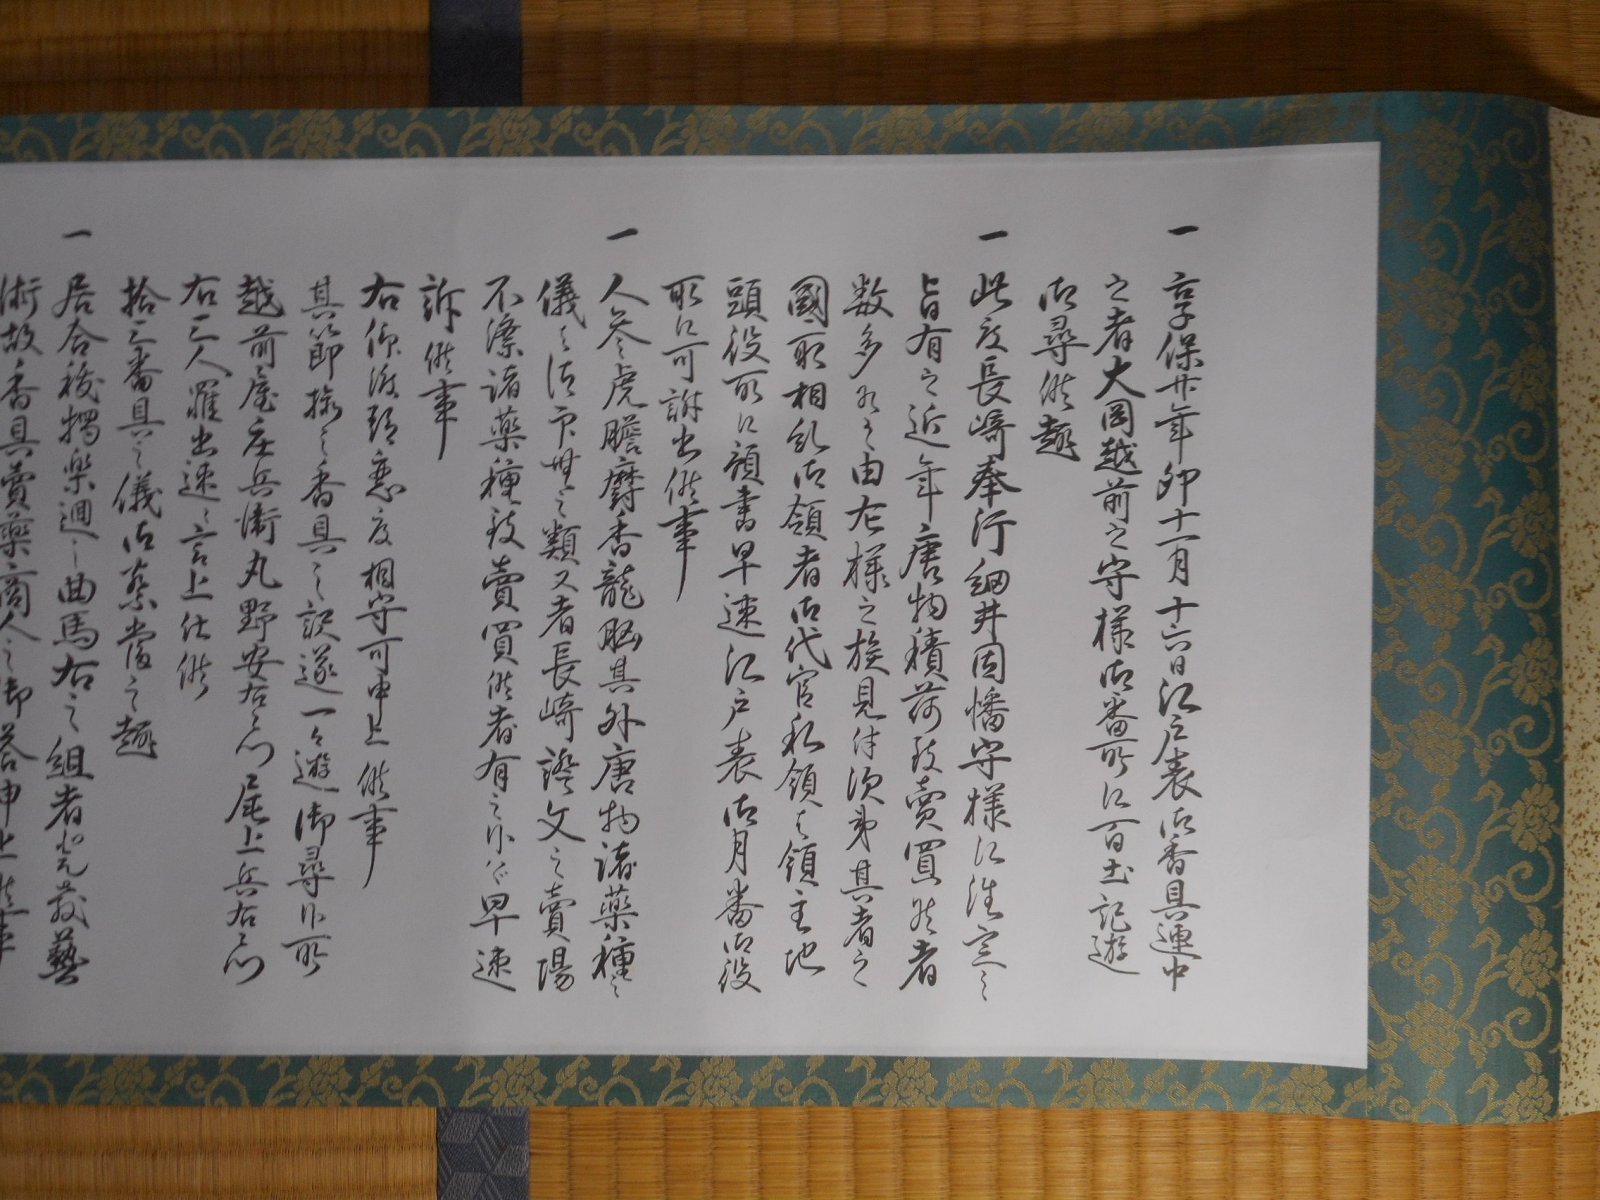 一 享保廿年卯十一月十六日江戸表御香具連中
之者大岡越前之守様御番所江百出記遊
御尋候趣
一 此度長崎奉行細井因幡守様江渡之
旨有之近年唐物積荷致賣買候者
数多有之由右様之族見付次第其者之
國所相糺御領者御代官私領者領主地
頭役所江願書早速江戸表御月番御役
所江可訴出候事
一 人参虎膽麝香龍脳其外唐物諸薬種之
儀者 類又者長崎證文之賣場
不済諸薬種致賣買候者有之候ハヾ早速
訴候事
右仰渡 急度相守可申上候事
其節拾三香具之訳逐一被遊御尋候所
越前屋庄兵衛丸野安右衛門尾上兵右衛門
右三人罷出速ニ言上仕候
拾三番具之儀御 之趣
一 居合抜獨楽廻シ曲馬右之組者 藝
術故香具賣薬商人之御答申上候事